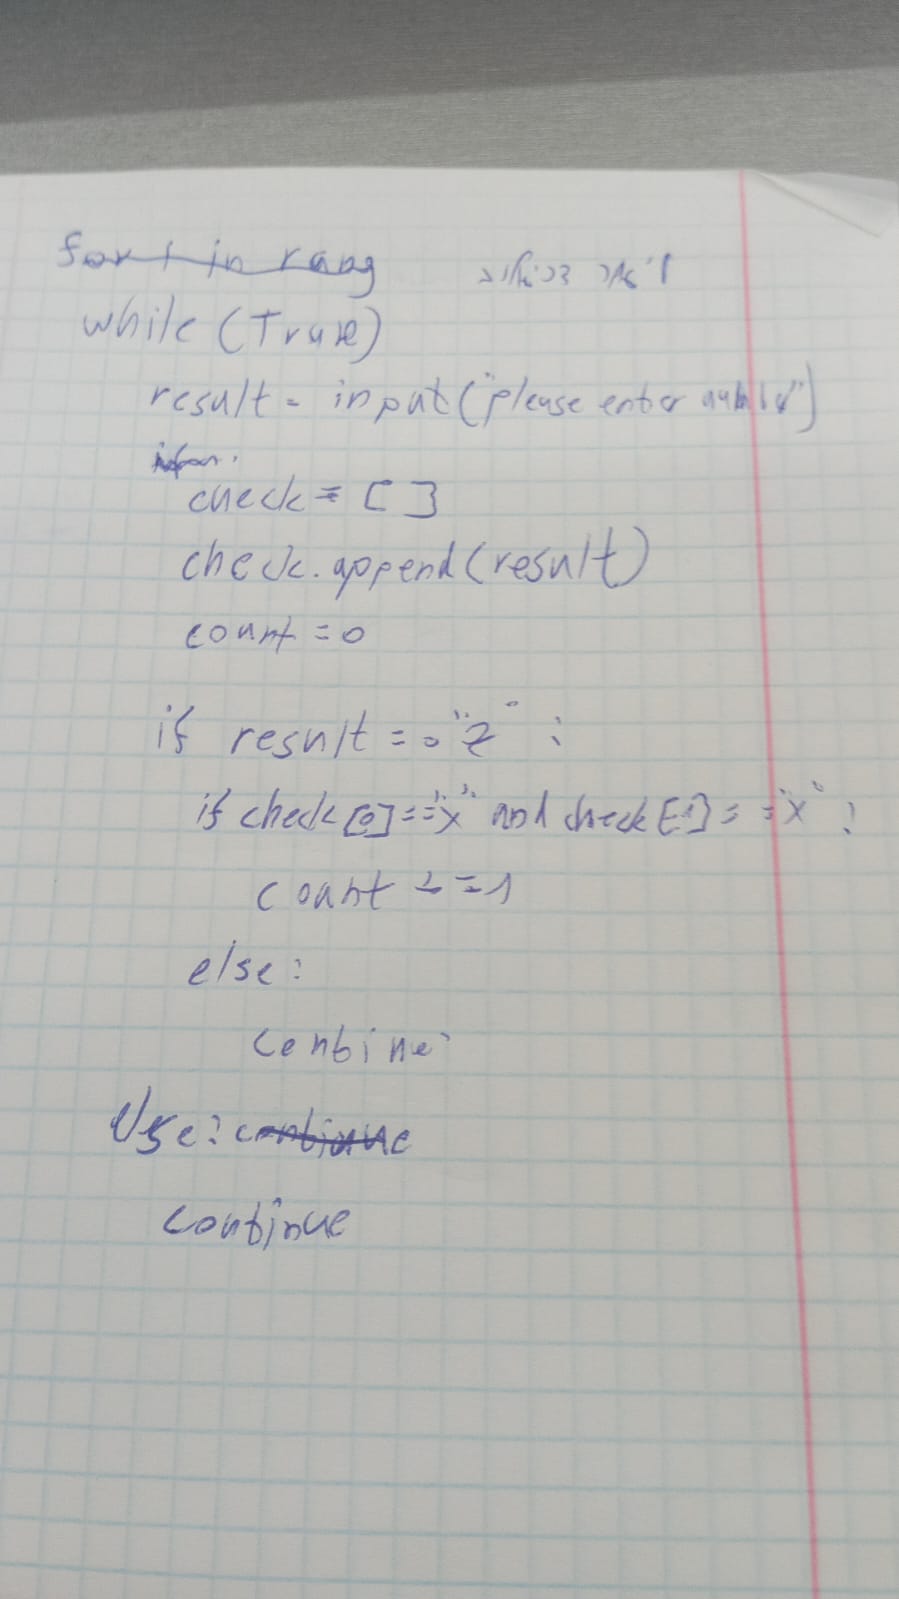 for i in rang
while (True)
result = input("please enter number")
check = []
check.append(result)
count = 0
if result == "z" :
if check [0] == "x" and check [1] == "x" :
count += 1
else :
continue
else : continue
continue